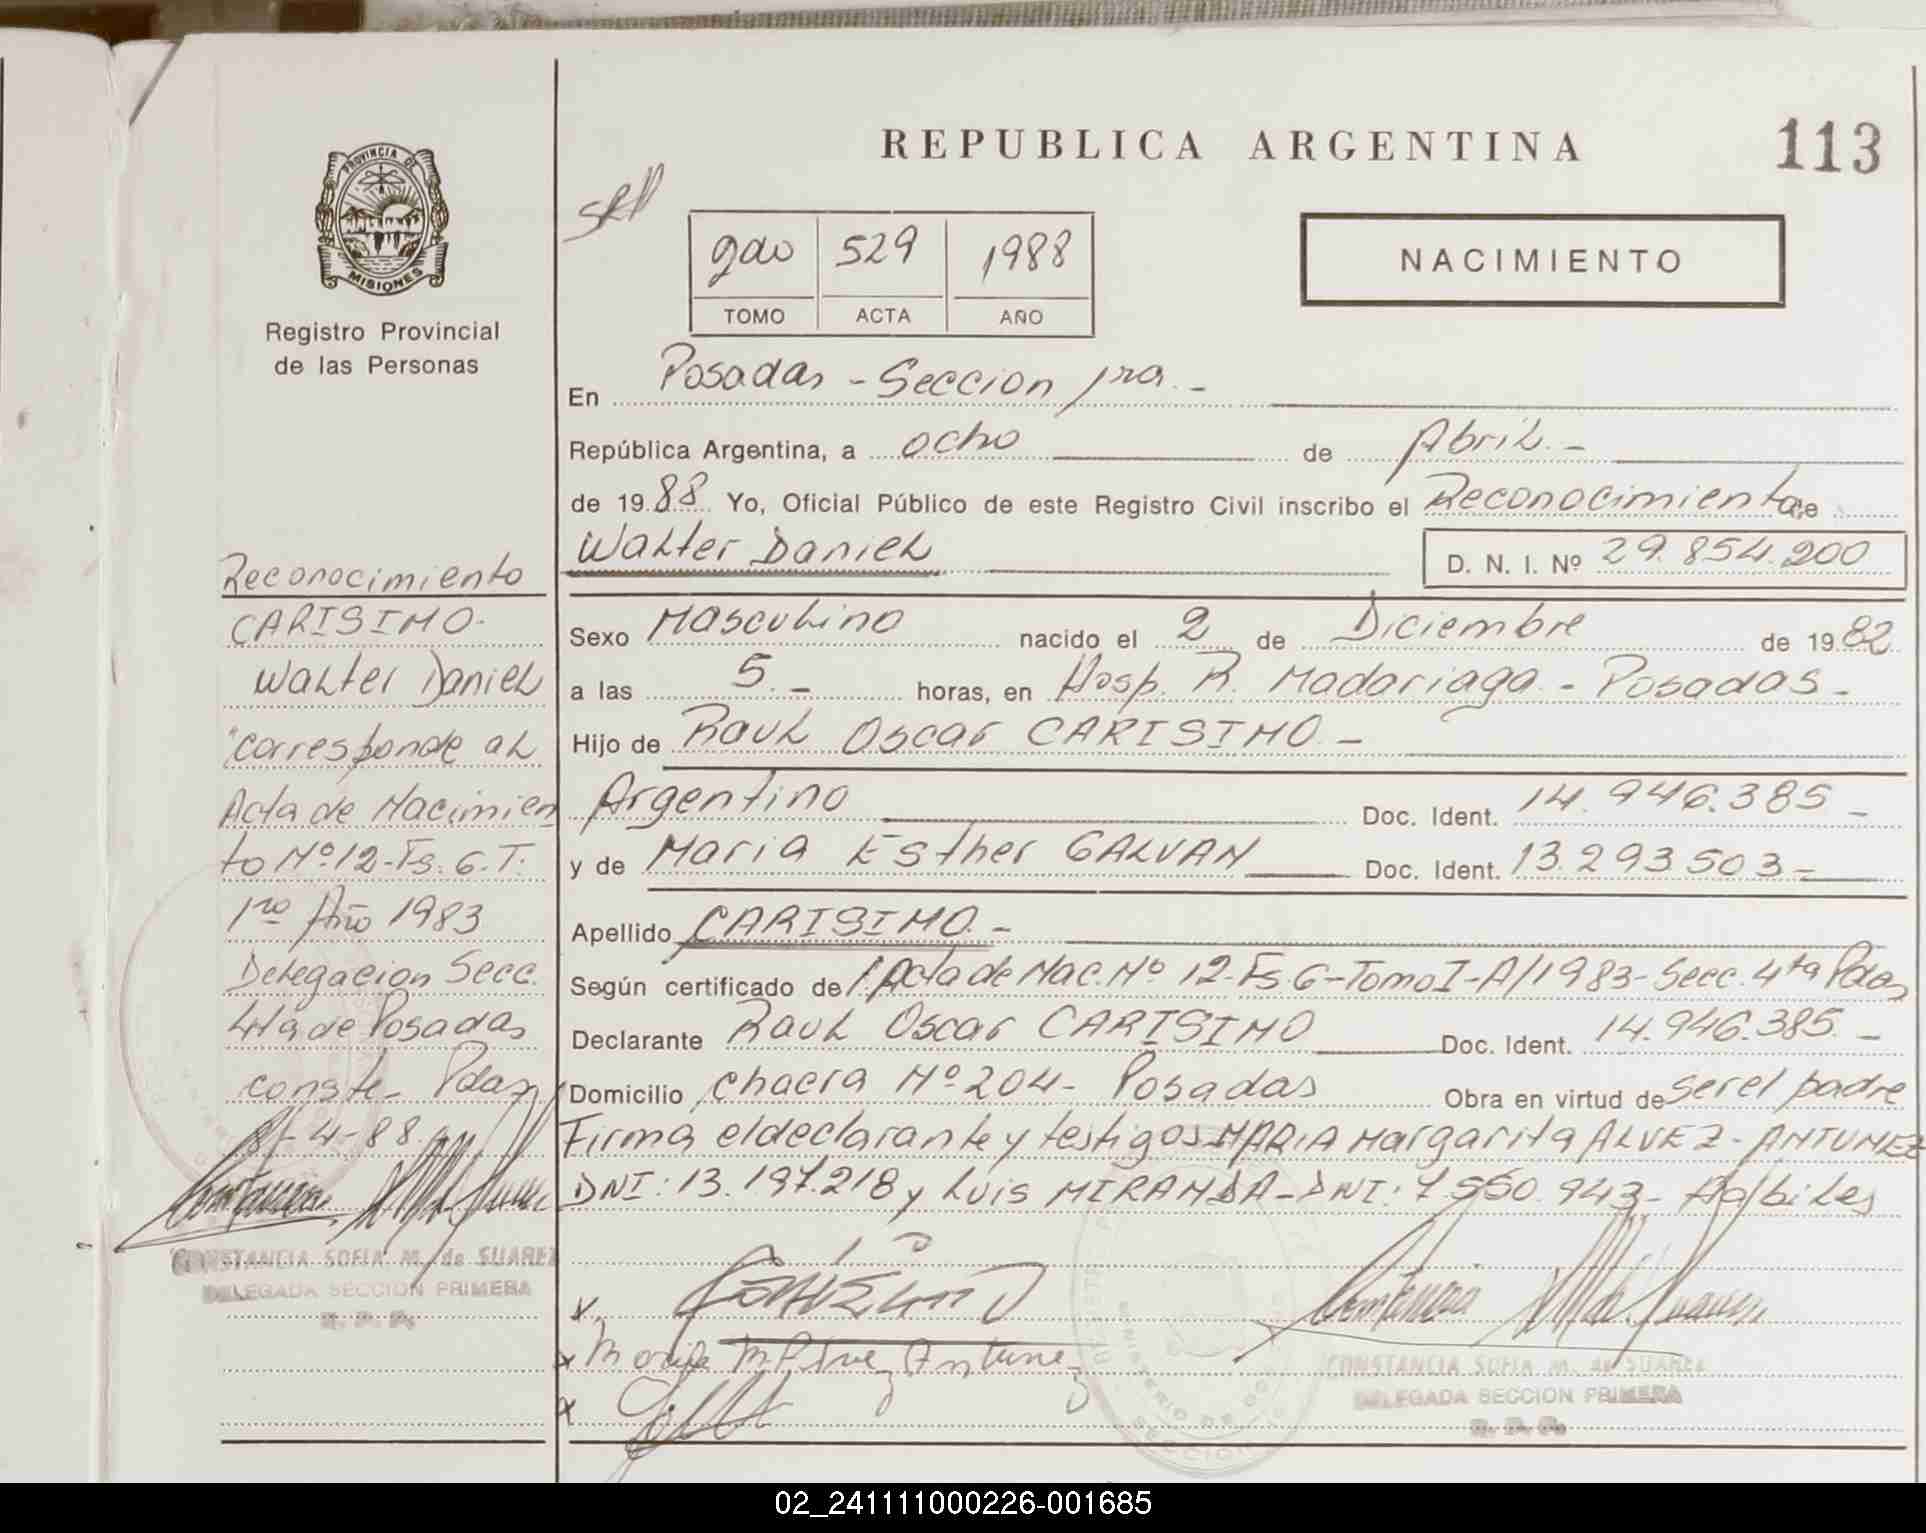 PROVINCIA DE
MISIONES
Registro Provincial
de las Personas
Reconocimiento
CARISIMO-
Walter Daniel
"corresponde al
Acta de Nacimien
to Nº 12-Fs. 6. T.
1ro Año 1983
Delegacion Secc.
4ta de Posadas
conste- Pdas,
8-4-88.
CONSTANCIA SOFIA M. de SUAREZ
DELEGADA SECCION PRIMERA
R. P. P.
REPUBLICA ARGENTINA 113
2do 529 1988
TOMO ACTA AÑO
NACIMIENTO
En Posadas - Seccion 1ra. -
República Argentina, a ocho de Abril. -
de 1988 Yo, Oficial Público de este Registro Civil inscribo el Reconocimiento de
Walter Daniel D. N. I. Nº 29.854.200
Sexo Masculino nacido el 2 de Diciembre de 1982
a las 5. - horas, en Hosp. R. Madariaga. - Posadas -
Hijo de Raul Oscar CARISIMO. -
Argentino Doc. Ident. 14.946.385 -
y de Maria Esther GALVAN Doc. Ident. 13.293.503 -
Apellido CARISIMO. -
Según certificado de Acta de Nac. Nº 12-Fs 6-Tomo I-A/1983-Secc. 4ta Pdas
Declarante Raul Oscar CARISIMO Doc. Ident. 14.946.385. -
Domicilio chacra Nº 204- Posadas Obra en virtud de ser el padre
Firma el declarante y testigos MARIA Margarita ALVEZ - ANTUNEZ
DNI: 13.197.218 y Luis MIRANDA-DNI: 7.550.943- Habiles
x
x Maria M Alvez Antunez
x
CONSTANCIA SOFIA M. de SUAREZ
DELEGADA SECCION PRIMERA
R. P. P.
02_241111000226-001685